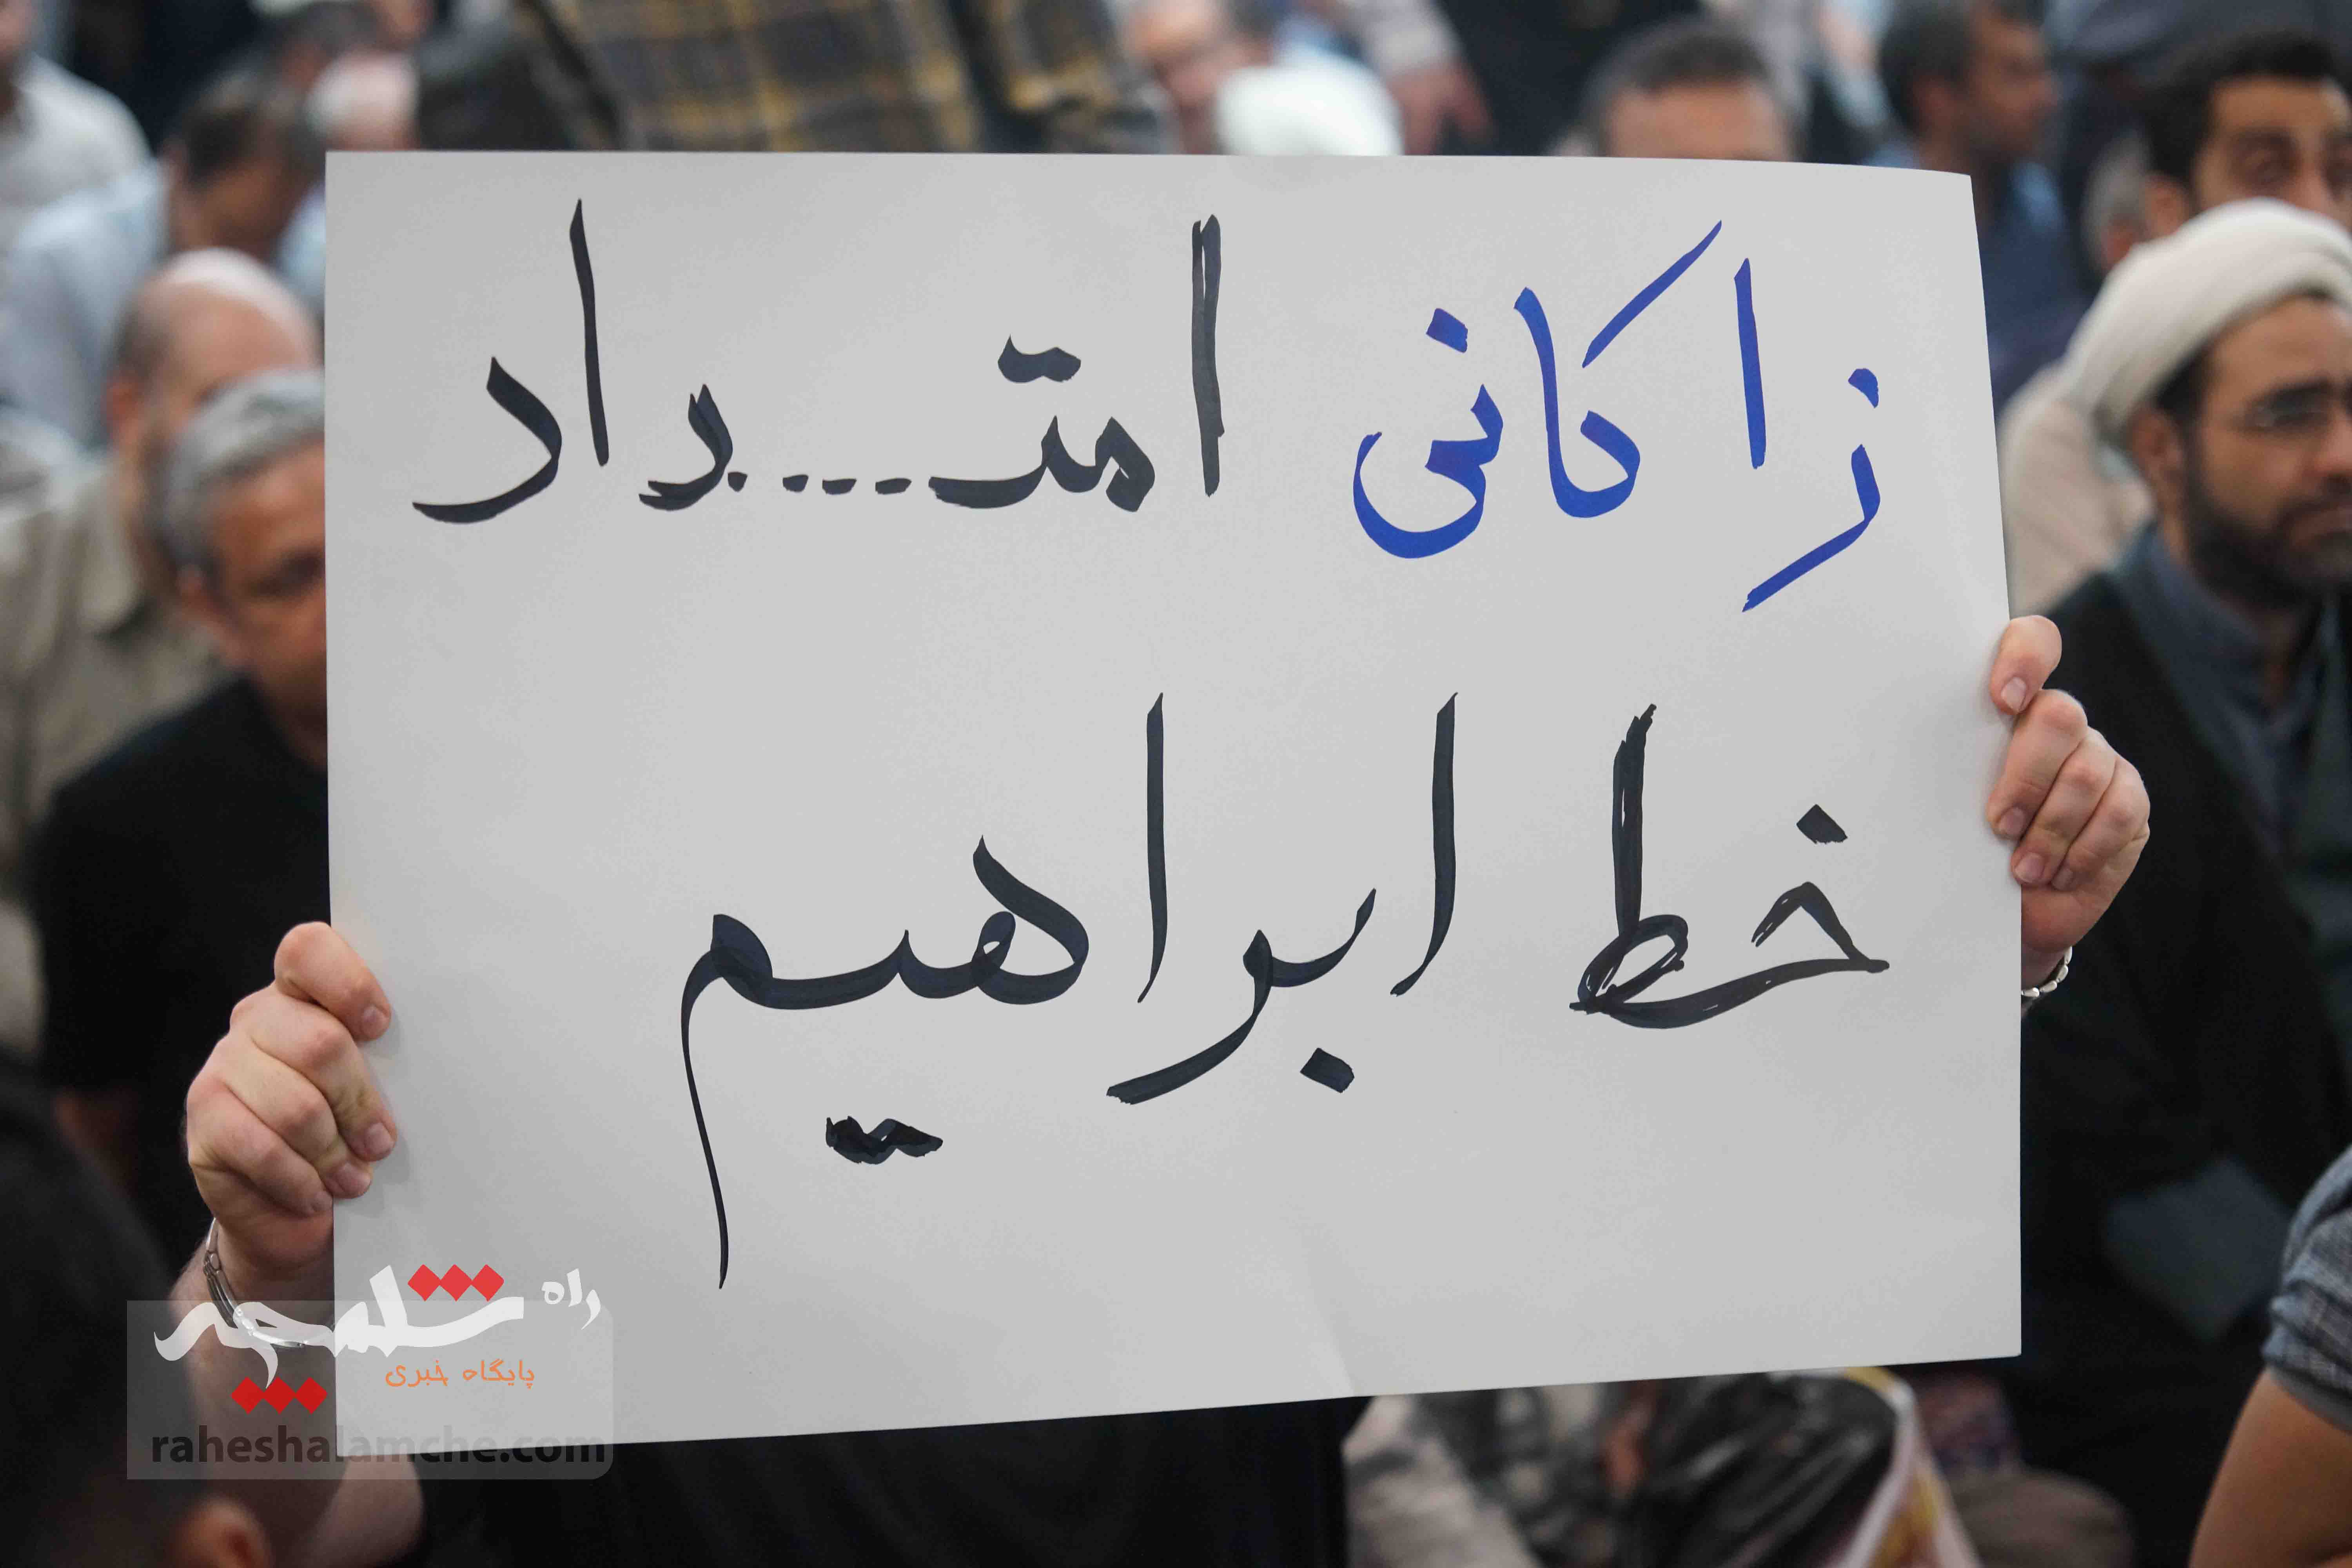 زاکانی امتـ....ـداد
خط ابراهیم
راه شلمچه
پایگاه خبری
raheshalamche.com